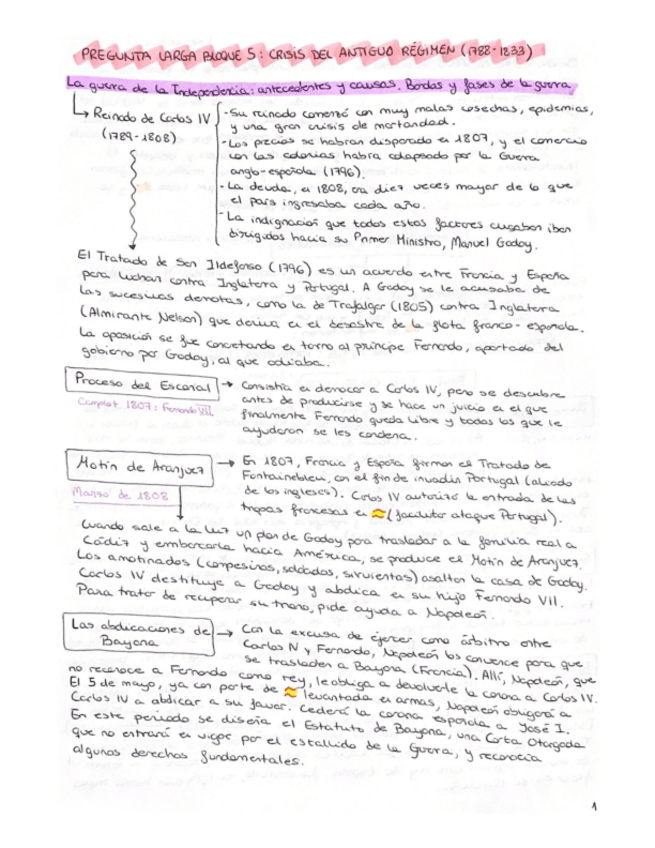 PREGUNTA LARGA BLOQUE 5: CRISIS DEL ANTIGUO RÉGIMEN (1788-1833)
La guerra de la Independencia: antecedentes y causas. Bandos y fases de la guerra
Reinado de Carlos IV
(1789-1808)
- Su reinado comenzó con muy malas cosechas, epidemias,
y una gran crisis de mortandad.
- Los precios se habran disparado en 1807, y el comercio
con las colonias habra colapsado por la Guerra
anglo-española (1796).
- La deuda, en 1808, era diez veces mayor de lo que
el país ingresaba cada año.
- La indignación que todos estos factores causaban iban
dirigidos hacia su Primer Ministro, Manuel Godoy.
El Tratado de San Ildefonso (1796) es un acuerdo entre Francia y España
para luchar contra Inglaterra y Portugal. A Godoy se le acusaba de
las sucesivas derrotas, como la de Trafalgar (1805) contra Inglaterra
(Almirante Nelson) que deriva en el desastre de la flota franco-española.
La oposición se fue concretando en torno al príncipe Fernando, apartado del
gobierno por Godoy, al que odiaba.
Proceso del Escorial
Complot 1807: Fernando VII
Consistía en derrocar a Carlos IV, pero se descubre
antes de producirse y se hace un juicio en el que
finalmente Fernando queda libre y todos los que le
ayudaron se les condena.
Motín de Aranjuez
Marzo de 1808
En 1807, Francia y España firman el Tratado de
Fontainebleu, con el fin de invadir Portugal (aliado
de los ingleses). Carlos IV autorizó la entrada de las
tropas francesas en (facilitar ataque Portugal).
Cuando sale a la luz un plan de Godoy para trasladar a la familia real a
Cádiz y embarcarla hacia América, se produce el Motín de Aranjuez.
Los amotinados (campesinos, soldados, sirvientas) asaltan la casa de Godoy.
Carlos IV destituye a Godoy y abdica en su hijo Fernando VII.
Para tratar de recuperar su trono, pide ayuda a Napoleón.
Las abdicaciones de
Bayona
Con la excusa de ejercer como árbitro entre
Carlos IV y Fernando, Napoleón los convence para que
se trasladen a Bayona (Francia). Allí, Napoleón, que
no reconoce a Fernando como rey, le obliga a devolverle la corona a Carlos IV.
El 5 de mayo, ya con parte de levantada en armas, Napoleón obligará a
Carlos IV a abdicar a su favor. Cederá la corona española a José I.
En este periodo se diseña el Estatuto de Bayona, una Carta Otorgada
que no entrará en vigor por el estallido de la Guerra, y reconocía
algunos derechos fundamentales.
1